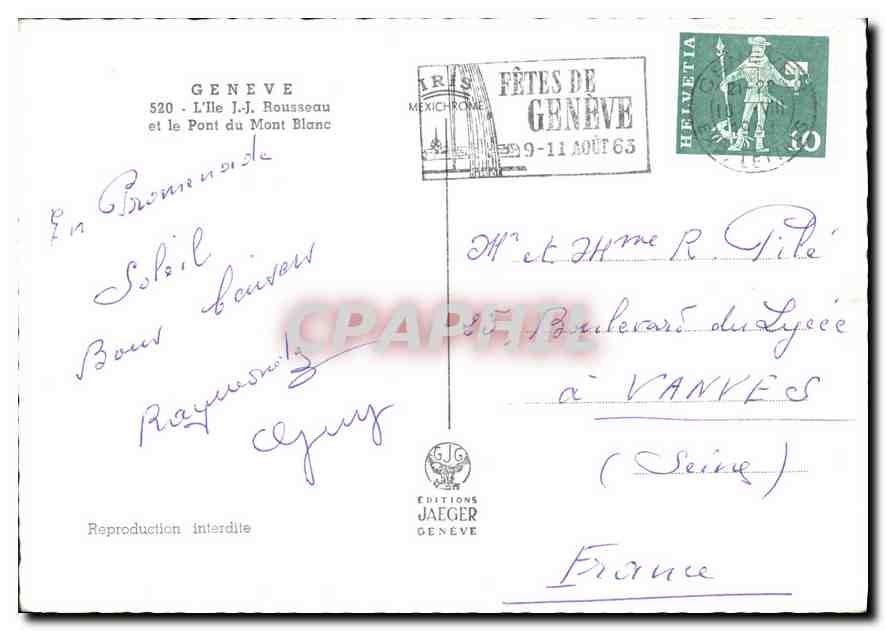 GENEVE
520 - L'Ile J.-J. Rousseau
et le Pont du Mont Blanc
IRIS
MEXICHROME
FÊTES DE
GENÈVE
9-11 AOÛT 63
HELVETIA
10
En Promenade
Soleil
Bons baisers
Raymonde
Guy
Mr et Mme R. Pilé
25, Boulevard du Lycée
à VANVES
(Seine)
France
CPAPHIL
GJG
ÉDITIONS
JAEGER
GENÈVE
Reproduction interdite